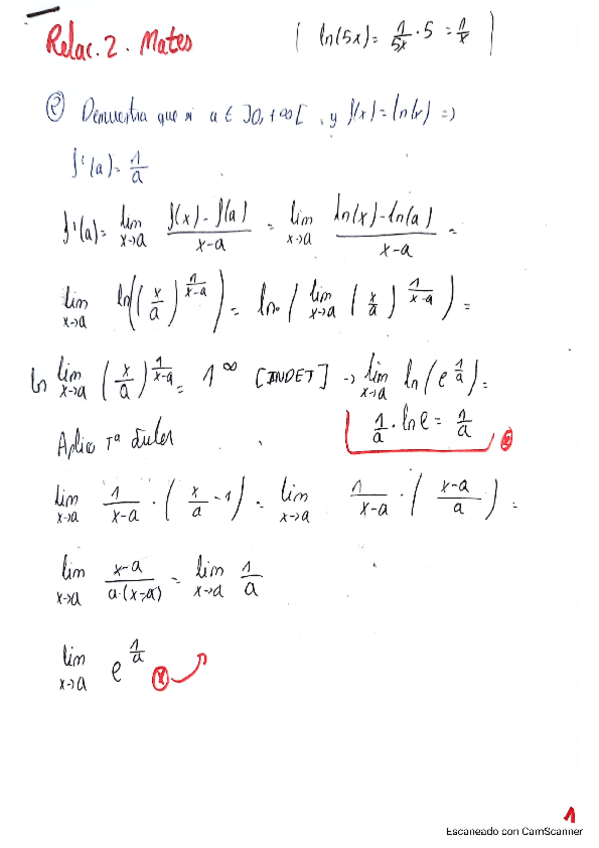 Relac. 2. Mates
( ln(5x) = 1/5x · 5 = 1/x )
② Demuestra que si a ∈ ]0,+∞[ , y f(x) = ln(x) =>
f'(a) = 1/a
f'(a) = lim x→a f(x) - f(a) / x-a = lim x→a ln(x) - ln(a) / x-a =
lim x→a ln((x/a)^(1/x-a)) = ln · ( lim x→a (x/a)^(1/x-a) ) =
ln lim x→a (x/a)^(1/x-a) = 1^∞ [INDET] → lim x→a ln(e^(1/a)) =
1/a · ln e = 1/a
Aplico Tª Euler
lim x→a 1/x-a · ( x/a - 1 ) = lim x→a 1/x-a · ( x-a/a ) =
lim x→a x-a / a·(x-a) = lim x→a 1/a
lim x→a e^(1/a)
1
Escaneado con CamScanner